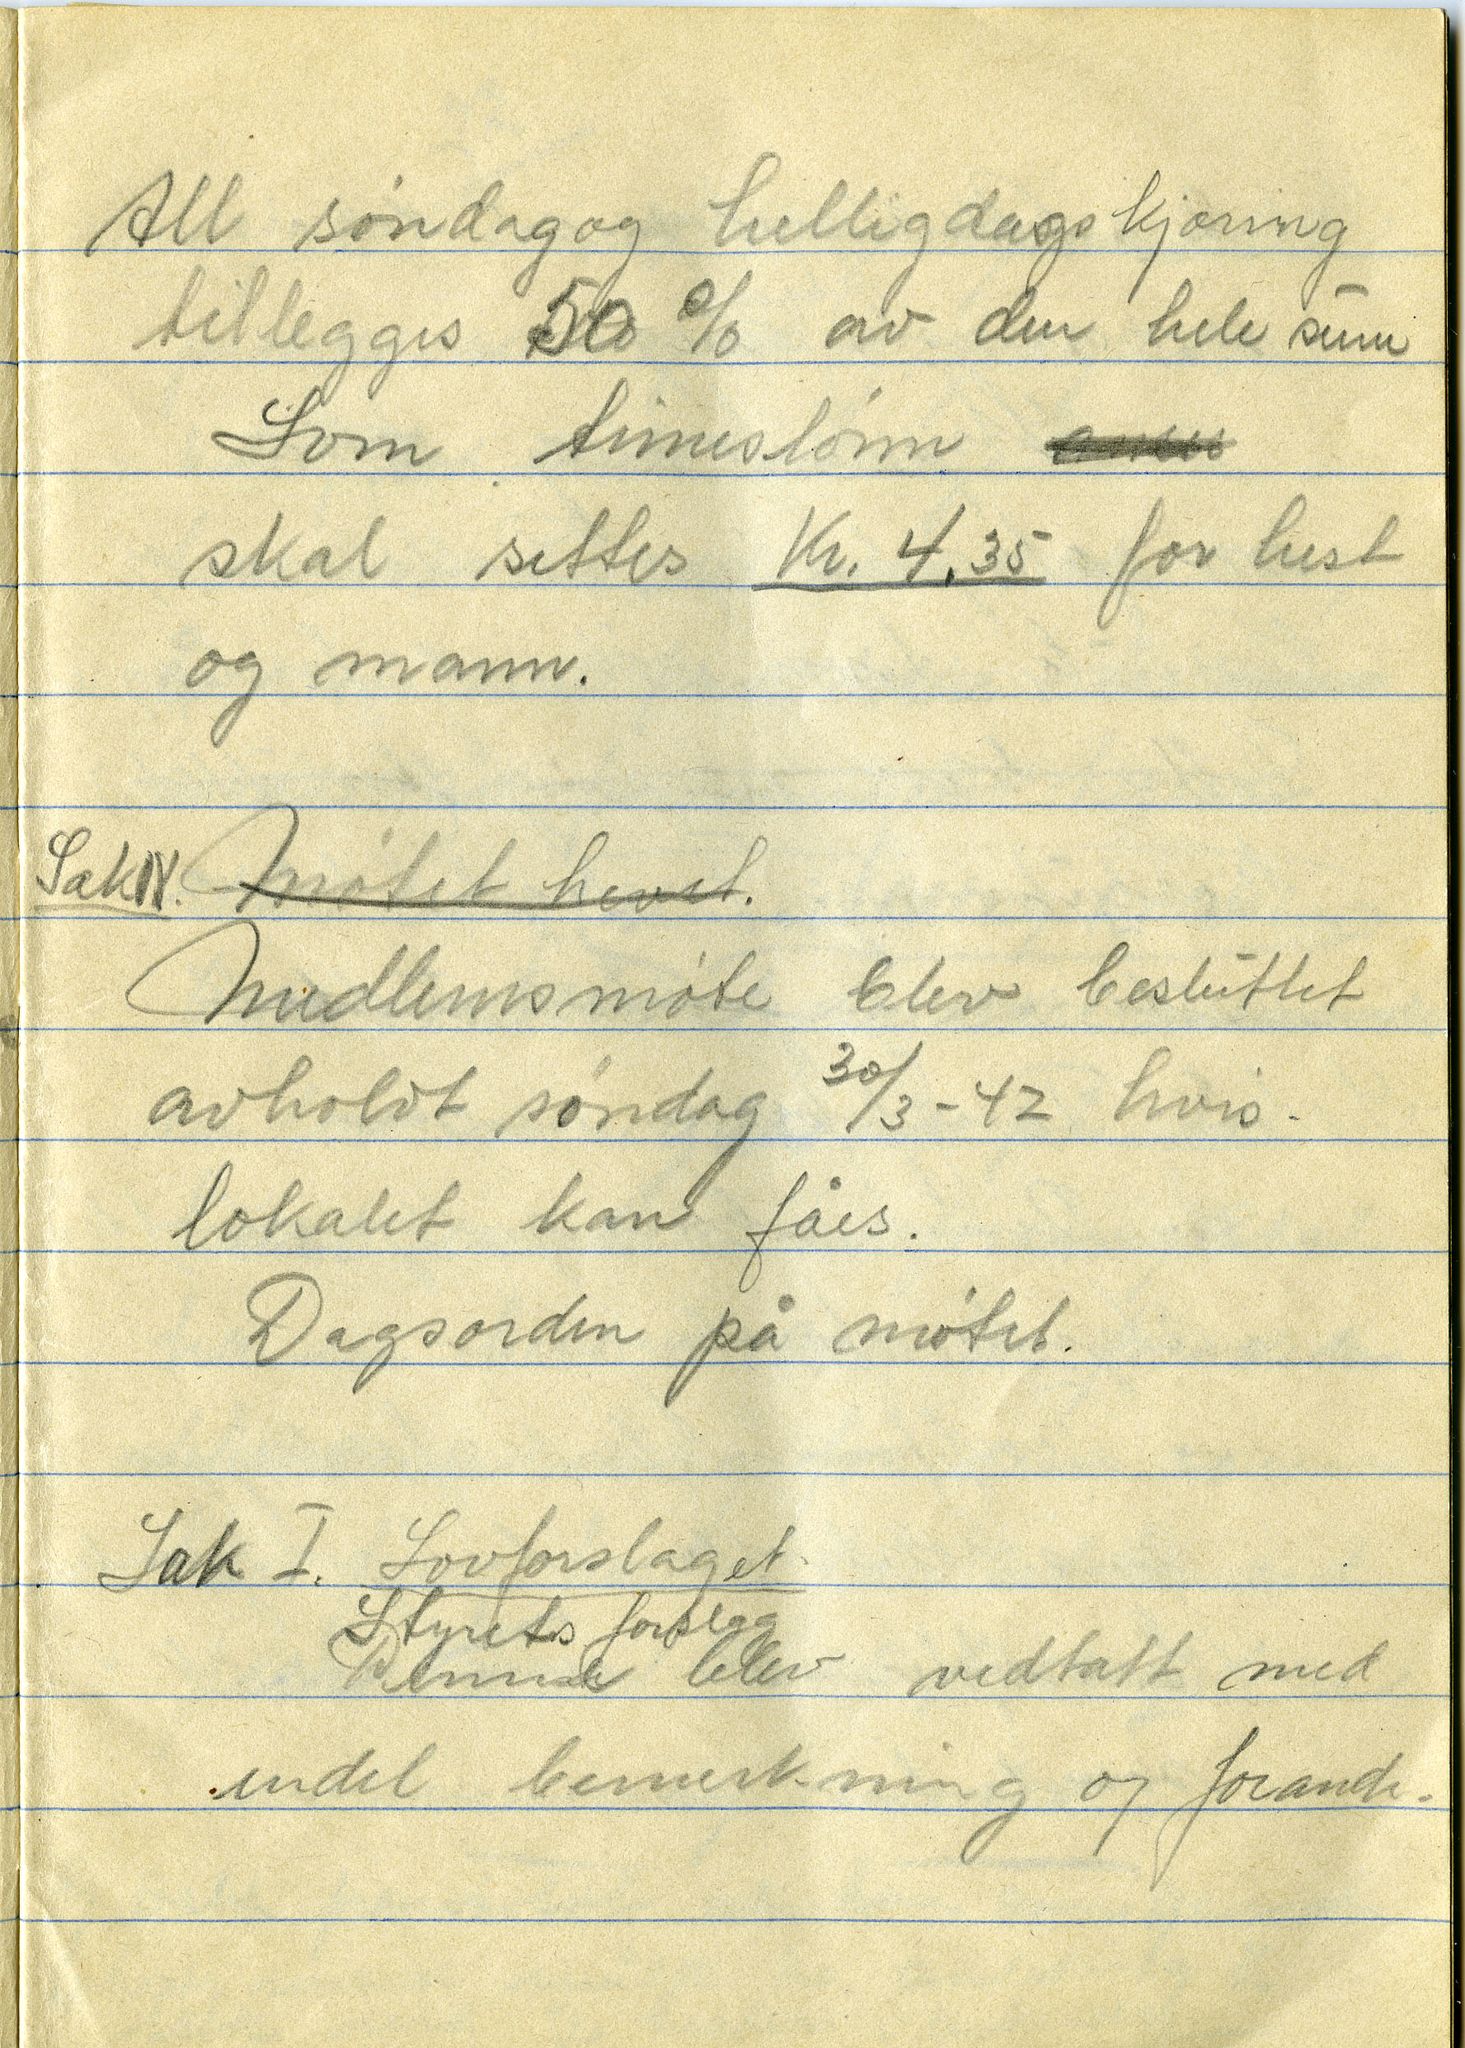 All søndag og helligdagskjøring
tillegges 50 % av den hele sum
Som timeslønn
skal settes Kr. 4,35 for hest
og mann.
Sak IV. Møtet hevet.
Medlemsmøte blev besluttet
avholdt søndag 30/3-42 hvis
lokalet kan fåes.
Dagsorden på møtet.
Sak I. Lovforslaget.
Styrets forslag
Denne blev vedtatt med
endel bemerkning og forandr-